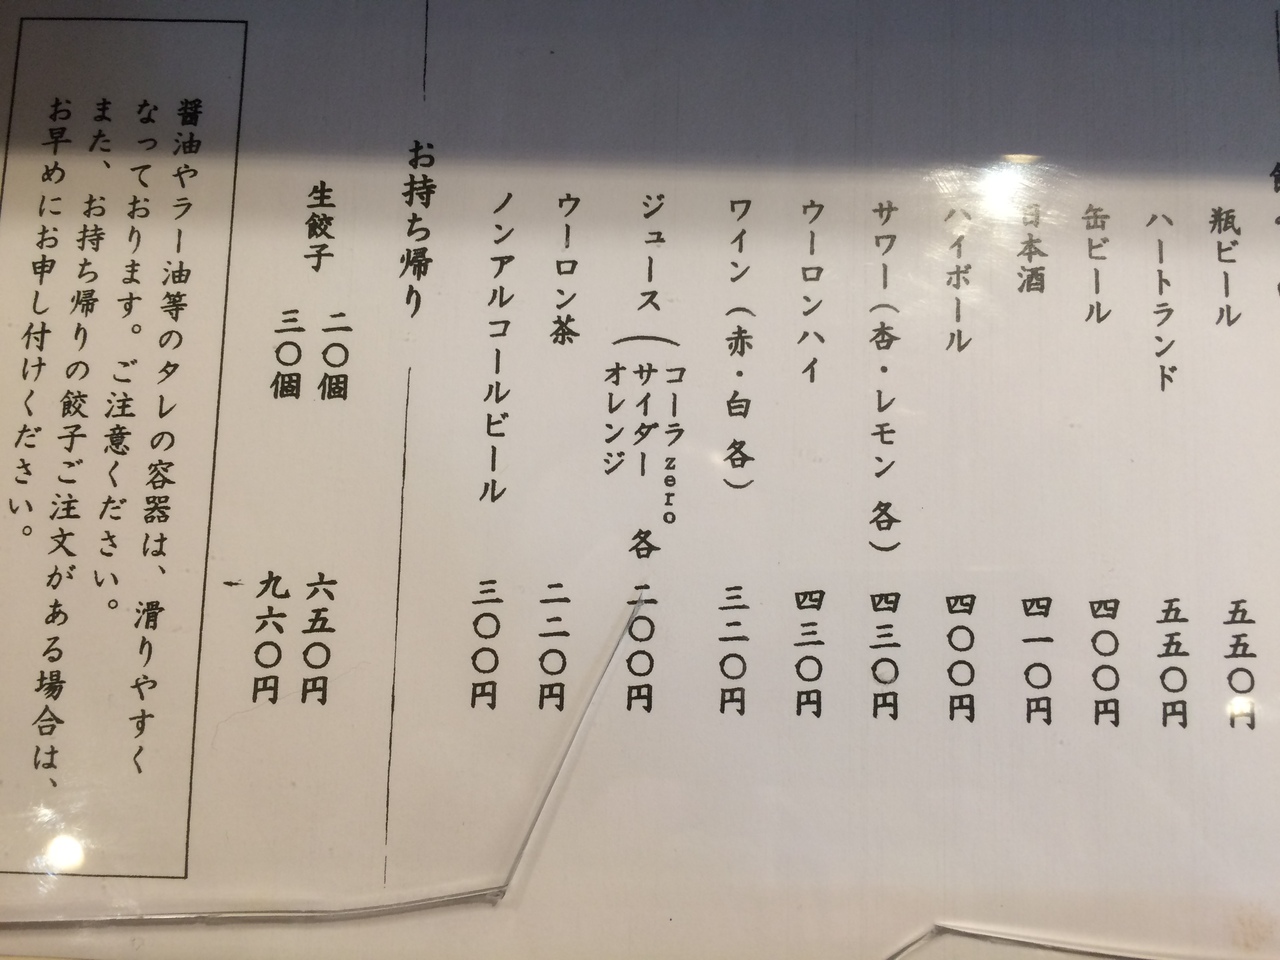 瓶ビール 五五〇円
ハートランド 五五〇円
缶ビール 四〇〇円
日本酒 四一〇円
ハイボール 四〇〇円
サワー（杏・レモン 各） 四三〇円
ウーロンハイ 四三〇円
ワイン（赤・白 各） 三二〇円
ジュース（コーラzero
サイダー 各 二〇〇円
オレンジ
ウーロン茶 二二〇円
ノンアルコールビール 三〇〇円
お持ち帰り
生餃子 二〇個 六五〇円
三〇個 九六〇円
醤油やラー油等のタレの容器は、滑りやすく
なっております。ご注意ください。
また、お持ち帰りの餃子ご注文がある場合は、
お早めにお申し付けください。